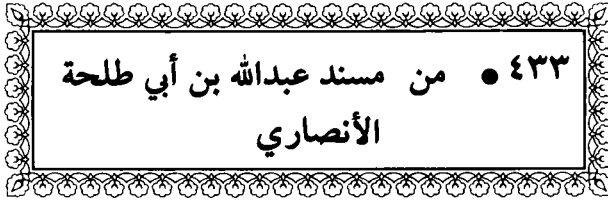 ٤٣٣ ● من مسند عبدالله بن أبي طلحة
الأنصاري